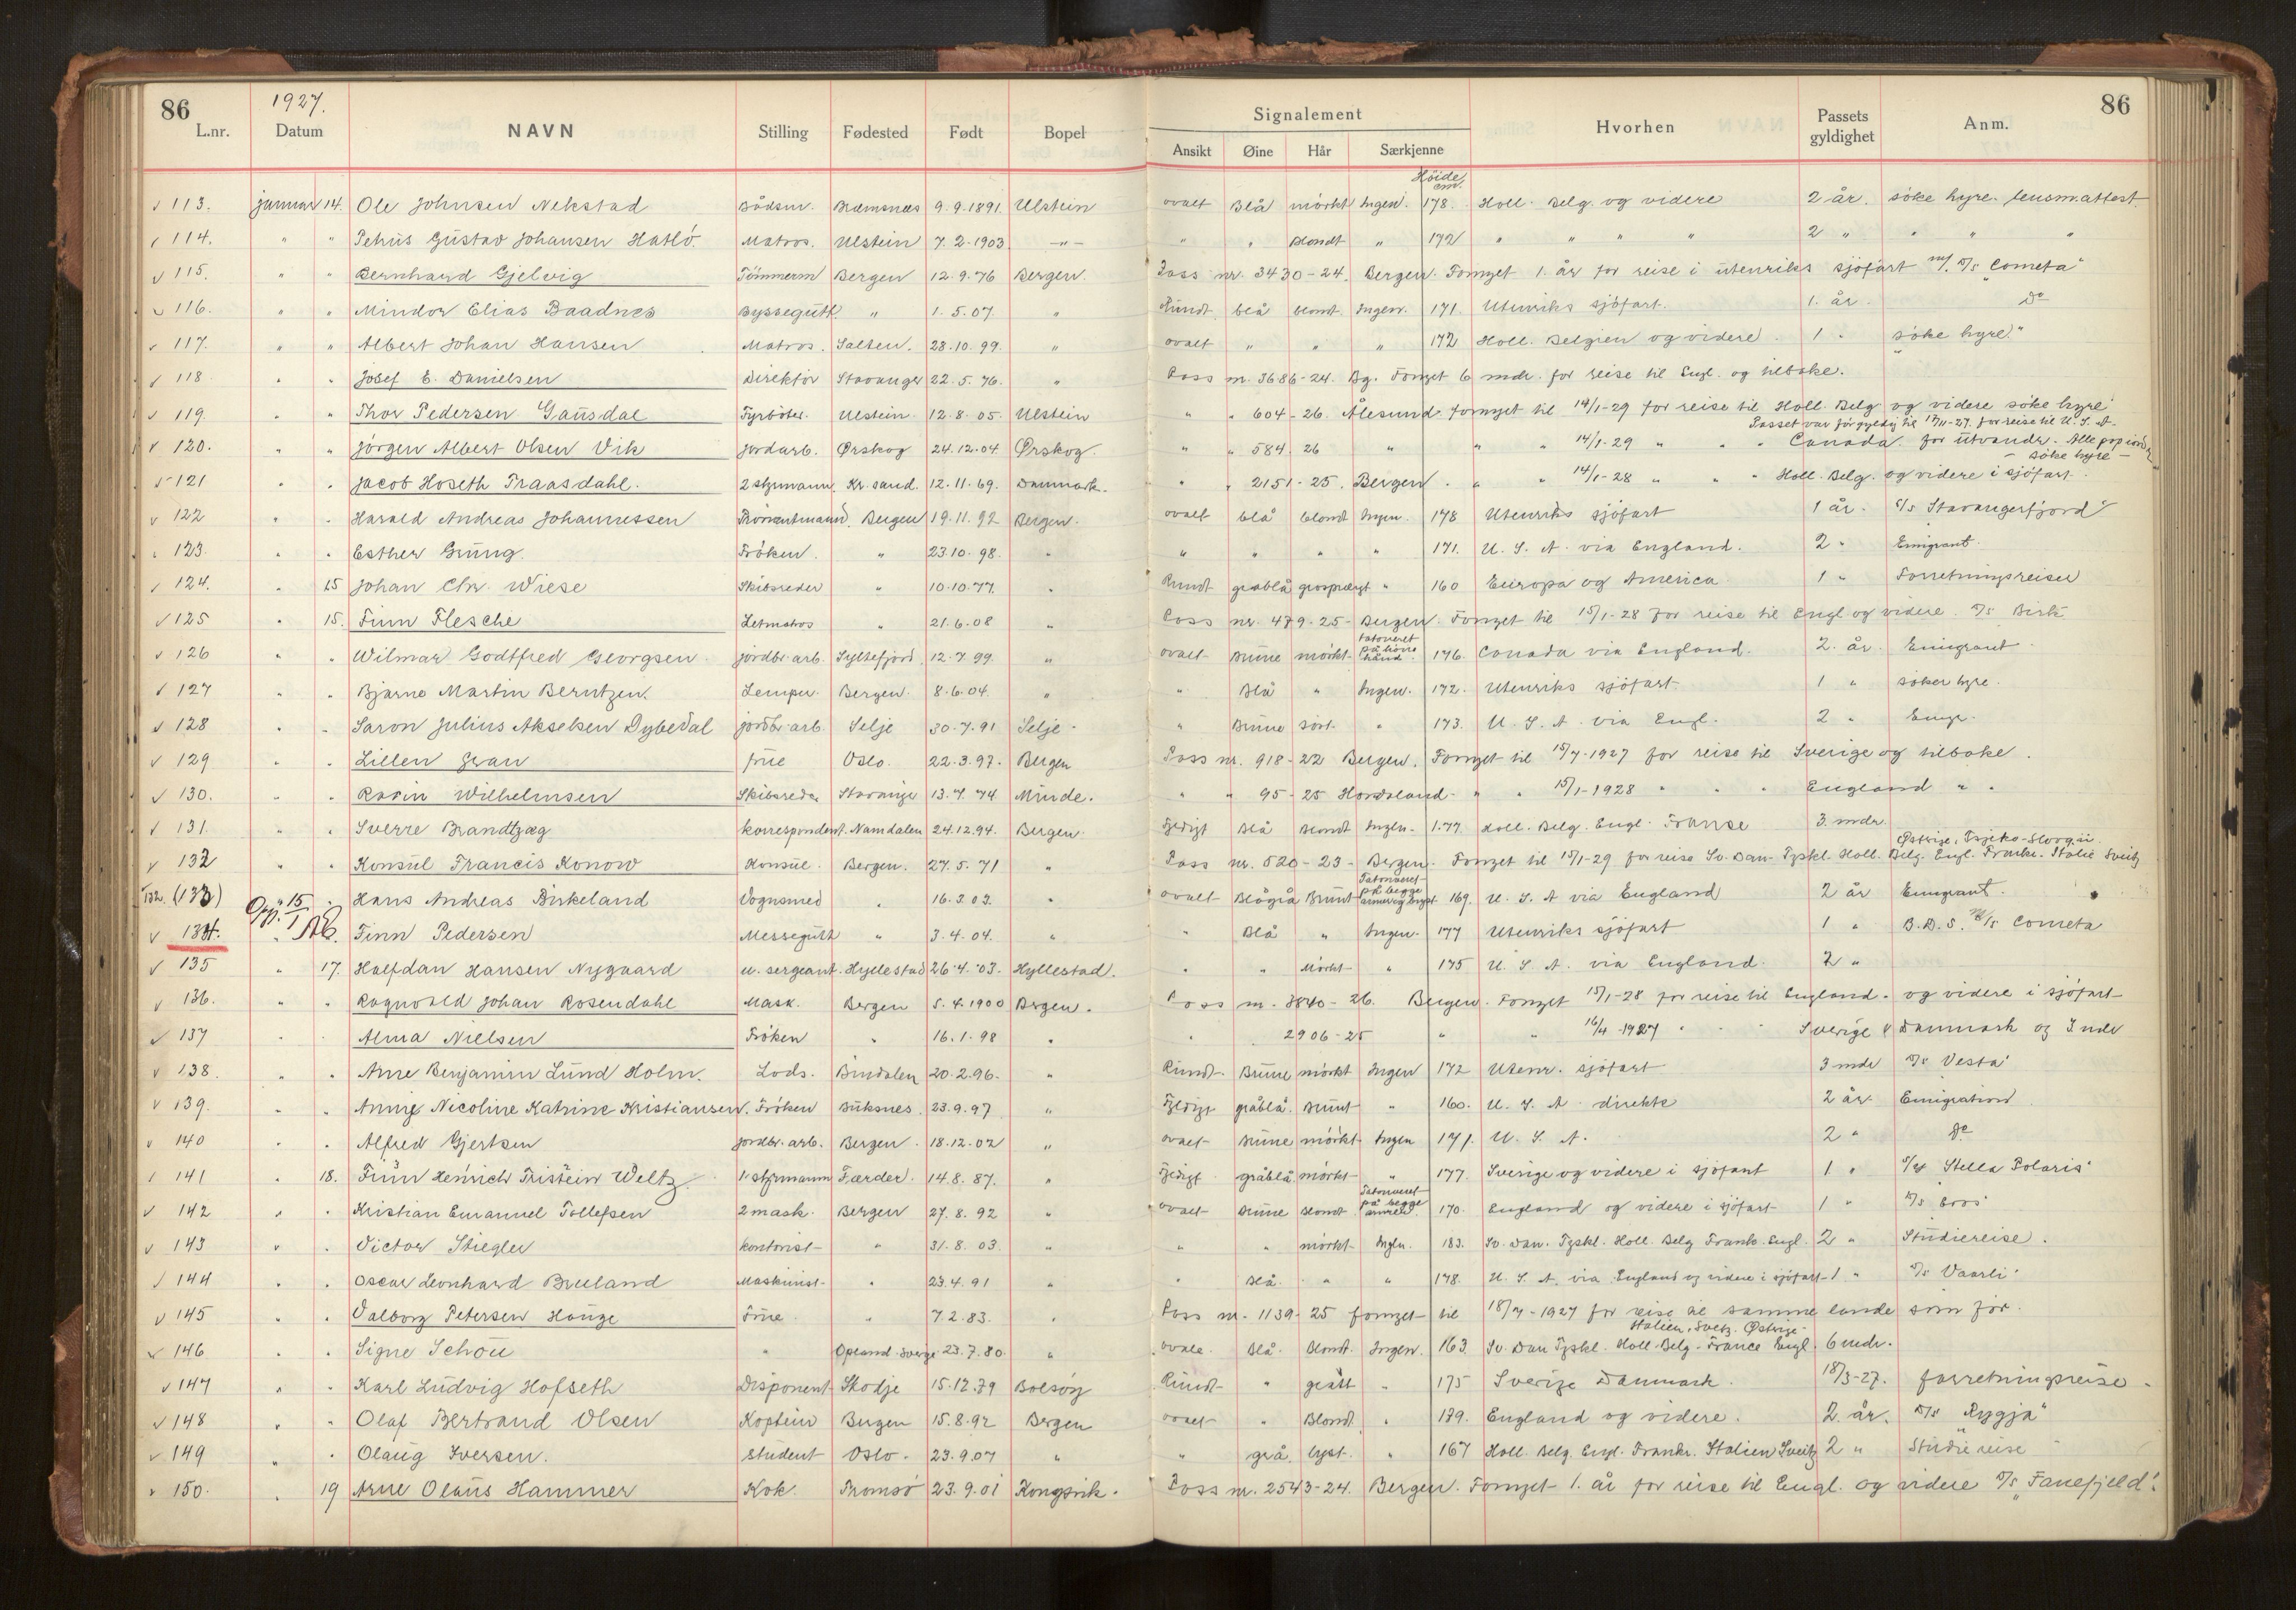 86 1927. 86
L.nr. Datum NAVN Stilling Fødested Født Bopel Signalement Hvorhen Passets gyldighet Anm.
Ansikt Øine Hår Særkjenne
Høide cm.
113. januar 14. Ole Johnsen Nekstad Bådsm. Bremsnes 9.9.1891. Ulstein ovalt Blå mörkt Ingen. 178. Holl. Belg. og videre 2 år. söke hyre. lensm.attest.
114. " " Petrus Gustav Johansen Hatlö. Matros. Ulstein 7.2.1903. —"— " " Blondt " 172 " " " " 2 " " " "
115. " " Bernhard Gjelvig Tömmerm Bergen 12.9.76 Bergen. Pass nr. 3430-24. Bergen. Fornyet 1. år for reise i utenriks sjöfart m/ D/s "Cometa"
116. " " Mindor Elias Baadnes Byssegutt " 1.5.07. " Rundt blå blondt. Ingen. 171. Utenriks sjöfart. 1. år. Do
117. " " Albert Johan Hansen Matros. Salten. 28.10.99. " ovalt " " " 172 Holl. Belgien og videre. 1 " söke hyre."
118. " " Josef E. Danielsen Direktör Stavanger 22.5.76. " Pass nr. 3686-24. Bg. Fornyet 6 mdr. for reise til Engl. og tilbake.
119. " " Thor Pedersen Gausdal Fyrböter. Ulstein. 12.8.05. Ulstein " " 604-26. Ålesund fornyet til 14/1-29 for reise til Holl. Belg. og videre söke hyre
Passet var för gyldig til 17/11-27. for reise til U.S.A.
120. " " Jörgen Albert Olsen Vik Jordarb. Ørskog 24.12.04 Ørskog. " " 584. 26 " " " 14/1-29 " " " Canada for utvandr.
— söke hyre —
121 " " Jacob Hoseth Traasdahl. 2 styrmann. Kr.sand. 12.11.69. Danmark. " " 2151-25. Bergen. " " 14/1-28 " " " Holl. Belg. og videre i sjöfart.
122 " " Harald Andreas Johannessen Bergen 19.11.92 Bergen. ovalt blå blondt Ingen. 178 Utenriks sjöfart 1 år. D/s Stavangerfjord"
123. " " Esther Grung. Fröken. " 23.10.98. " " " " " 171. U.S.A. via England. 2 " Emigrant.
124. " 15 Johan Chr. Wiese Skibsreder " 10.10.77. " Rundt gråblå gråsprengt " 160 Europa og America 1 " Forretningsreiser
125 " 15. Finn Flesche Letmatros " 21.6.08 " Pass nr. 479-25- Bergen. Fornyet til 15/1-28 for reise til Engl og videre. D/s Birk
126 " " Wilmar Godtfred Georgsen. jordbr.arb. Syltefjord. 12.7.99. " ovalt Brune mörkt. tatoveret på hånd. 176. Canada via England. 2. år. Emigrant.
127 " " Bjarne Martin Berntzen. Lemper. Bergen. 8.6.04. " " Blå " Ingen. 172. Utenriks sjöfart. 1 " söker hyre.
128 " " Saron Julius Akselsen Dybedal jordbr.arb. Selje 30.7.91 Selje. " Brune sort. " 173. U.S.A. via Engl. 2 " Emigr.
129 " " Lillen Gran frue Oslo. 22.3.97. Bergen Pass nr. 918-22 Bergen. Fornyet til 15/7-1927 for reise til Sverige og tilbake.
130. " " Wilhelmsen Skibsreder Stavanger 13.7.74 Minde. " " 95-25 Hordaland. " " 15/1-1928 " " " England " "
131. " " Sverre Brandtzæg korrespondent. Namdalen 24.12.94. Bergen. Fyldigt Blå Blondt Ingen. 1.77. Holl. Belg. Engl. Franse 3. mdr.
Østrige, Tsjeko-Slovaki.
132 " " Konsul Francis Konow Konsul. Bergen. 27.5.71 " Pass nr. 520-23- Bergen. Fornyet til 15/1-29 for reise Sv. Dan. Tyskl. Holl. Belg. Engl. Frankr. Italie Sveitz
132. (133) " 15 " Hans Andreas Birkeland Vognsmed " 16.3.03. " ovalt Blågrå Brunt Tatoveret på begge armer og bryst. 169. U.S.A via England 2 år Emigrant.
Opg. 15/1 AB.
134. " Finn Pedersen Messegutt " 3.4.04. " " Blå " Ingen. 177 Utenriks sjöfart 1 " B.D.S. D/s Cometa
135 " 17. Halfdan Hansen Nygaard u. sergeant. Hyllestad 26.4.03. Hyllestad. " " Mörkt " 175 U.S.A. via England. 2 "
136. " " Ragnvald Johan Rosendahl Mask. Bergen 5.4.1900 Bergen. Pass nr. 3840-26. Bergen. Fornyet 15/1-28 for reise til England. og videre i sjöfart
137 " " Alma Nielsen Fröken " 16.1.98 " " 2906-25 " " 16/4-1927 " " " Sverige & Danmark og 3 mdr
138. " " Arne Benjamin Lund Holm. Lods. Bindalen 20.2.96. " Rundt. Brune mörkt Ingen 172 Utenr. sjöfart 3 mdr D/s Vesta"
139. " " Anny Nicoline Katrine Kristiansen. Fröken Buksnes. 23.9.97 " Fyldigt gråblå. Brunt " 160. U.S.A. direkte 2 år Emigration
140 " " Alfred Gjertsen jordbr.arb. Bergen. 18.12.02 " ovalt Brune mörkt Ingen 171. U.S.A. 2 " Do
141 " 18. Finn Henrich Tristein Weltz. 1. styrmann Færder. 14.8.87. " Fyldigt gråblå. mörkt " 177. Sverige og videre i sjöfart 1 " Stella Polaris"
142 " " Kristian Emanuel Tollefsen 2 mask. Bergen 27.8.92 " ovalt Brune Blondt Tatoveret på begge armer. 170. England og videre i sjöfart 1 " D/s Eros"
143 " " Victor Stiegler kontorist " 31.8.03. " " " mörkt Ingen. 183. Sv. Dan. Tyskl. Holl. Belg Frank. Engl. 2 " Studiereise.
144 " " Oscar Leonhard Breeland Maskinist " 23.4.91 " " Blå. " " 178. U.S.A. via England og videre i sjöfart 1 " D/s Vaarli"
145 " " Valborg Petersen Hauge Frue " 7.2.83. " Pass nr. 1139-25 fornyet til 18/7-1927 for reise til samme lande som för.
Italien, Sveitz. Østrige
146 " " Signe Schou " Opland Sverge 23.7.80. " ovale. Blå. Blondt. Ingen. 163. Sv. Dan Tyskl. Holl. Belg. France Engl. 6 mdr.
147 " " Karl Ludvig Hofseth Disponent Skodje 15.12.79 Bolsöy Rundt " grått " 175 Sverige Danmark. 18/3-27. forretningsreise.
148 " " Olaf Bertrand Olsen Kaptein Bergen 15.8.92 Bergen ovalt " Blond. " 179. England og videre. 2. år. D/s "Rygja"
149 " " Olaug Iversen. Student Oslo. 23.9.07 " " grå. lyst. " 167 Holl. Belg. Engl. Frankr. Italien Sveitz 2 " Studiereise
150. " 19 Arne Olaus Hammer Kok. Tromsö 23.9.01 Kongsvik. Pass nr. 2543-24. Bergen. Fornyet 1. år for reise til Engl. og videre D/s "Fanefjeld".